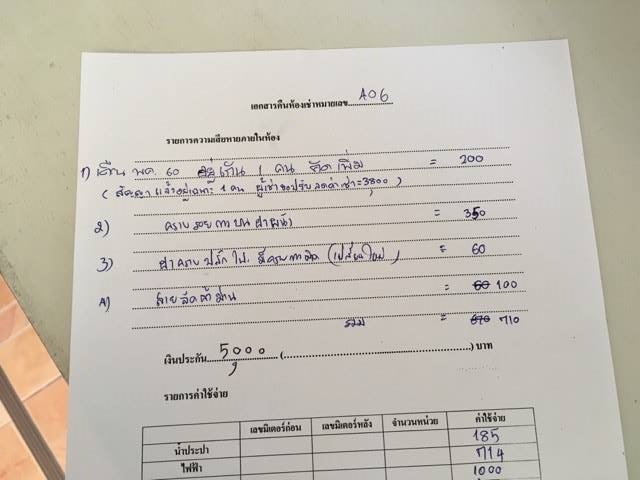 เอกสารคืนห้องเช่าหมายเลข.....A06.....
รายการความเสียหายภายในห้อง
1) เดือน พค. 60 อยู่เกิน 1 คน คิดเพิ่ม = 200
(สัญญาแจ้งอยู่เฉพาะ 1 คน ผู้เช่าขอปรับลดค่าเช่า=3800)
2) คราบรอยกาบนฝาผนัง = 350
3) ฝาครอบปลั๊กไฟ มีคราบกาวติด (เปลี่ยนใหม่) = 60
4) สายฉีด = 60 100
รวม = 670 710
เงินประกัน....5,000....(........................................)บาท
รายการค่าใช้จ่าย
เลขมิเตอร์ก่อน เลขมิเตอร์หลัง จำนวนหน่วย ค่าใช้จ่าย
น้ำประปา 185
ไฟฟ้า 714
1000